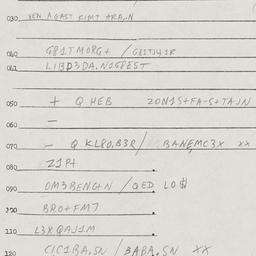 030 VEN AGAST KIMT TRA,N
040 G81TMORG+ / G81TJ41R
041 LIBD3DA.N1G8EST
050 + Q HEB 20N1S+FA-S+TA-JN
060 -
070 - Q KL80.B3R / BANEMC3X XX
080 Z1P+
090 OM3BENG+N / QED LO$
100 BRO+FM7
110 L3XQAJ1M
120 C1C1BA,SN / BABA.SN XX